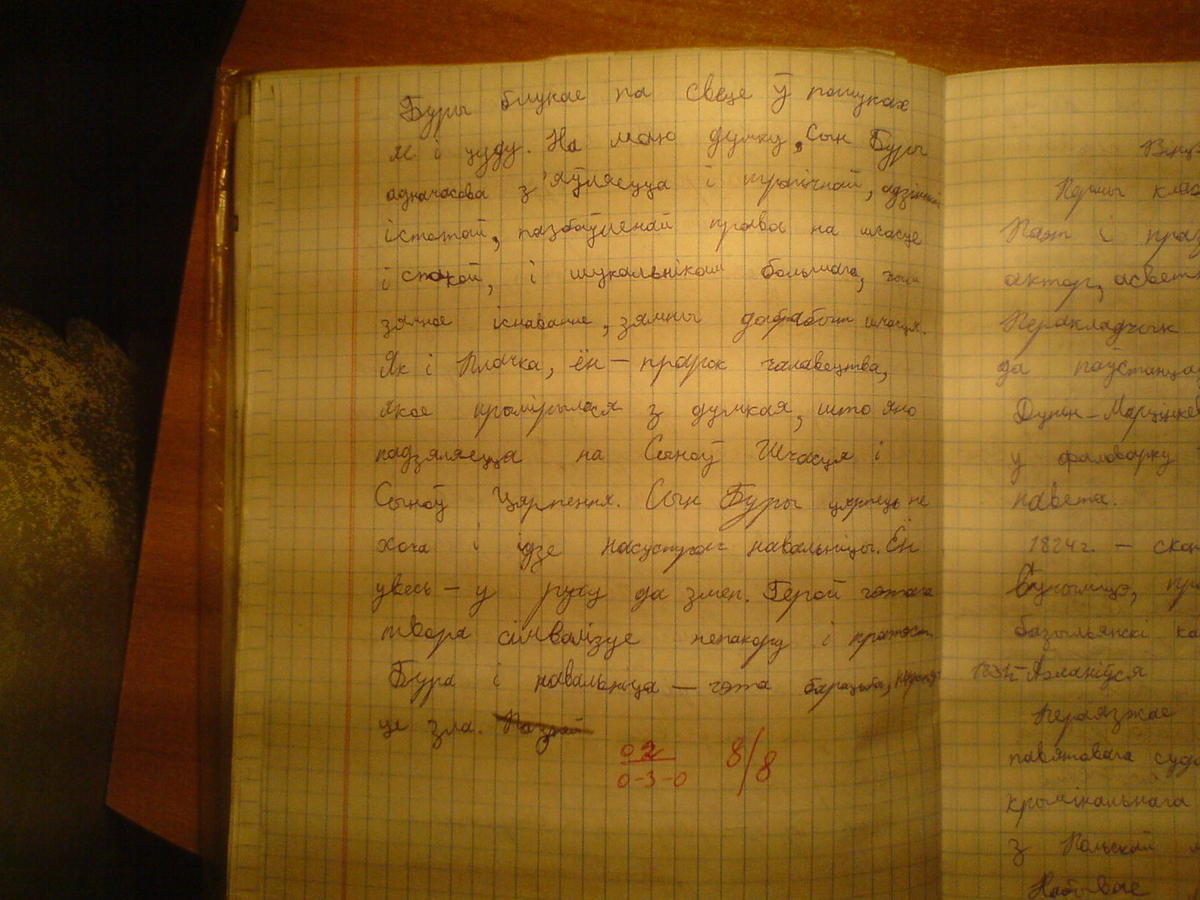 Буры блукае па свеце ў пошуках
і цуду. На маю думку, Сын Буры
адначасова з'яўляецца і трагічнай, адзінкай
істотай, пазбаўленай права на шчасце
і спакой, і шукальнікам большага, чым
зямное існаванне, зямны дабрабыт шчасця.
Як і Плачка, ён — прарок чалавецтва,
якое прымірылася з думкай, што яно
падзяляецца на Сыноў Шчасця і
Сыноў Цярпення. Сын Буры цярпець не
хоча і ідзе насустрач навальніцы. Ён
увесь — у руху да змен. Герой гэтага
твора сімвалізуе непакору і пратэст.
Бура і навальніца — гэта барацьба,
це зла.
02
0-3-0
8/8
Першы клас
Паэт і праз
актор, асвет
Перакладчык
да паўстанца
Дунін-Марцінке
у фальварку
павета.
1824г. — скон
Вучылішчэ, пр
базыльянскі ка
Ажаніўся
Пераязжае
павятовага суда
крымінальнага
з Польскай
Набывае